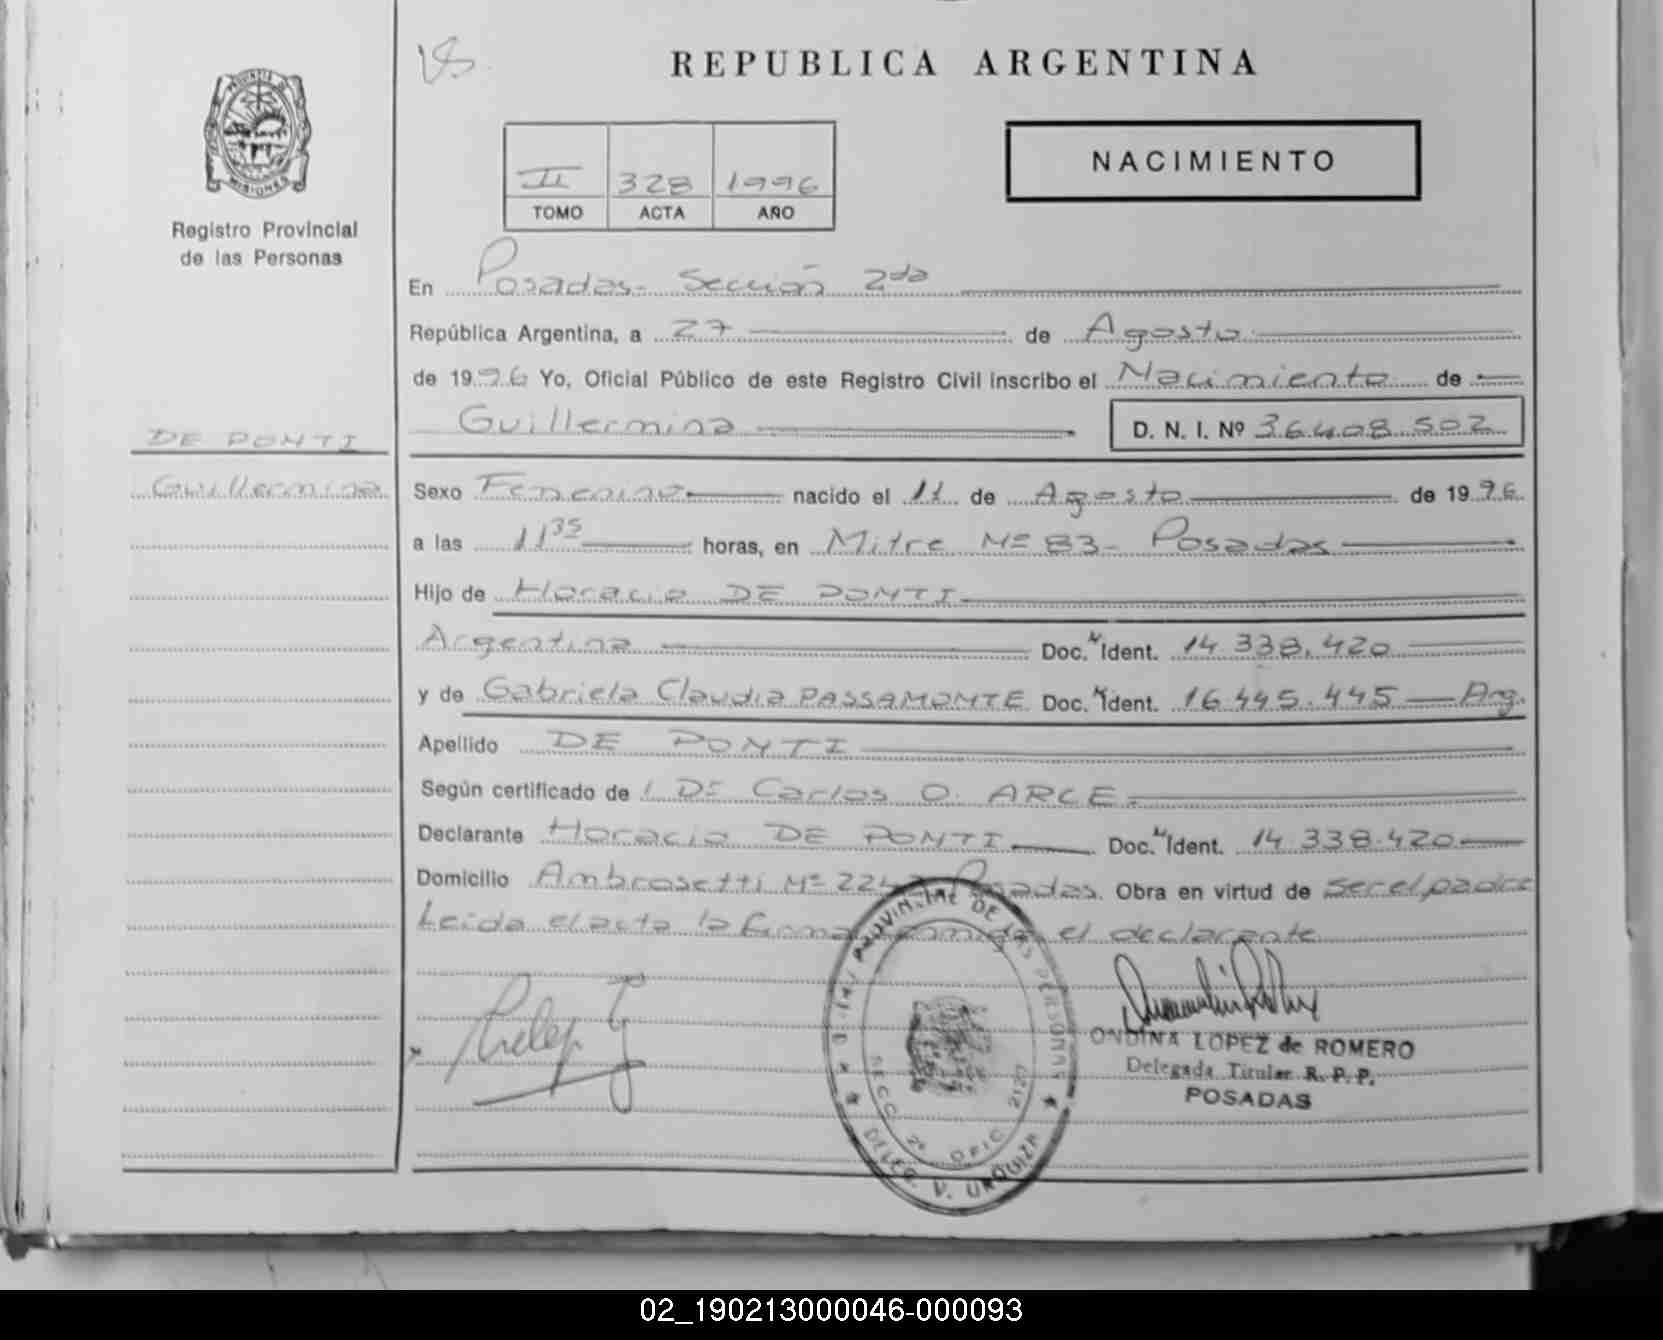 REPUBLICA ARGENTINA
MISIONES
Registro Provincial
de las Personas
NACIMIENTO
II 328 1996
TOMO ACTA AÑO
En Posadas- Sección 2da
República Argentina, a 27 de Agosto
de 1996 Yo, Oficial Público de este Registro Civil inscribo el Nacimiento de
Guillermina D. N. I. Nº 36.408.502
DE PONTI
Guillermina
Sexo Femenino nacido el 11 de Agosto de 1996
a las 11 35 horas, en Mitre Nº 83- Posadas
Hijo de Horacio DE PONTI
Argentina Doc. Ident. 14.338.420
y de Gabriela Claudia PASSAMONTE Doc. Ident. 16.445.445 Arg.
Apellido DE PONTI
Según certificado de Dr Carlos O. ARCE.
Declarante Horacio DE PONTI Doc. Ident. 14.338.420
Domicilio Ambrosetti Nº Posadas. Obra en virtud de ser el padre
Leida el acta la firma conmigo el declarante
PROVINCIAL DE LAS PERSONAS
SECC 2ª OFIC 2127
DELEG. V. URQUIZA
ONDINA LOPEZ de ROMERO
Delegada Titular R. P. P.
POSADAS
02_190213000046-000093